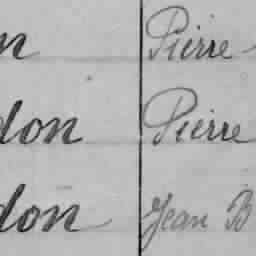 n Pierre
don Pierre
don Jean B